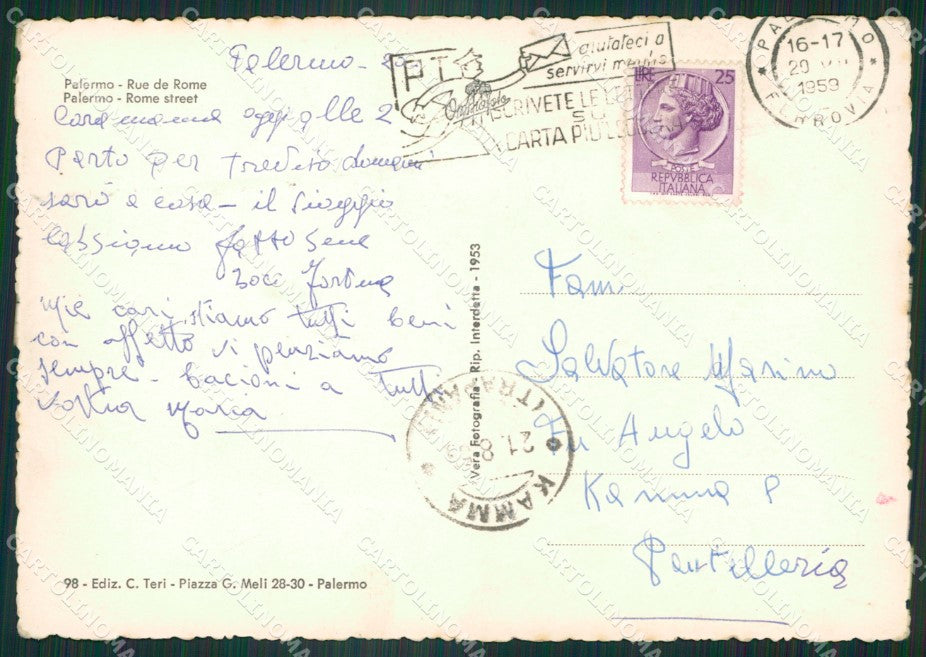 Palermo - Rue de Rome
Palermo - Rome street
Palermo - 20
Cara mamma oggi alle 2
parto per Trapani domani
sarò a casa - il viaggio
abbiamo fatto bene
baci
Miei cari, stiamo tutti beni
con affetto vi pensiamo
sempre - bacioni a tutti
vostra Maria
98 - Ediz. C. Teri - Piazza G. Meli 28-30 - Palermo
Vera Fotografia - Rip. Interdetta - 1953
P.T.
aiutateci a
servirvi meglio
SCRIVETE LE
SU
CARTA PIÙ
LIRE 25
POSTE
REPVBBLICA
ITALIANA
16-17
1959
FERROVIA
Fam
Salvatore Marino
Fu Angelo
Kamma P
Pantelleria
KAMMA
(TRAPANI)
21.8
CARTOLINOMANIA